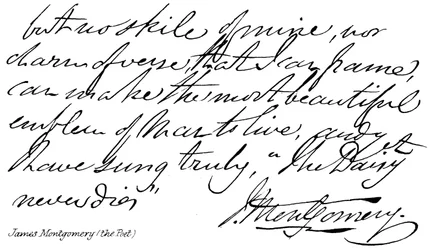 but no skile of mine, nor
charm of verse that I can frame,
can make the most beautiful
emblem of Man to live, and yet
I have sung truly, "The Daisy
never dies"
J. Montgomery.
James Montgomery (the Poet)